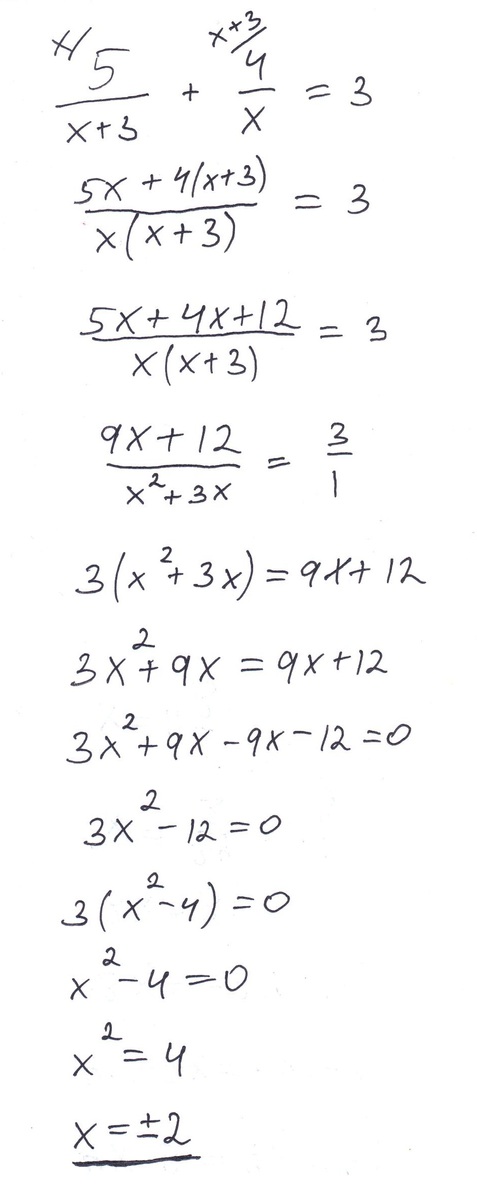 x/ 5/(x+3) + x+3/ 4/x = 3
(5x + 4(x+3))/(x(x+3)) = 3
(5x + 4x + 12)/(x(x+3)) = 3
(9x + 12)/(x² + 3x) = 3/1
3(x² + 3x) = 9x + 12
3x² + 9x = 9x + 12
3x² + 9x - 9x - 12 = 0
3x² - 12 = 0
3(x² - 4) = 0
x² - 4 = 0
x² = 4
x = ±2